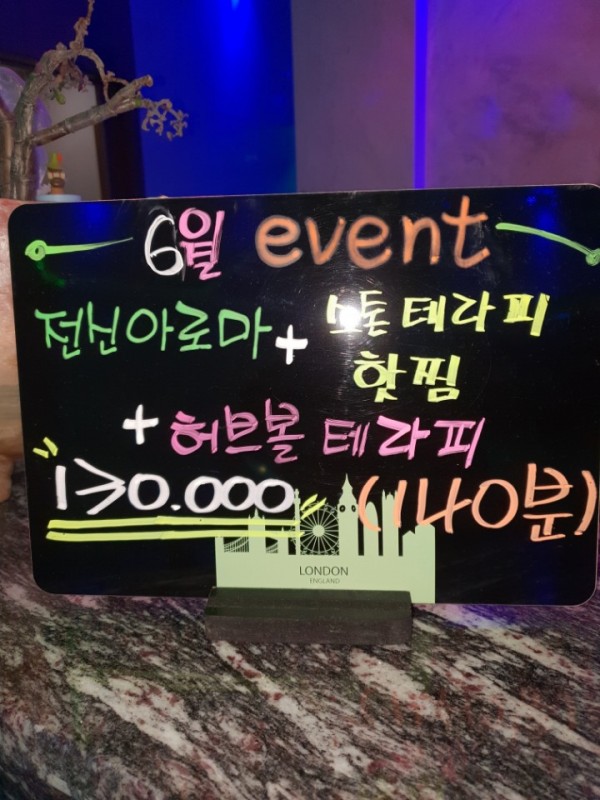 6월 event
전신아로마 + 스톤 테라피
핫찜
+ 허브볼 테라피
130.000 (140분)
LONDON
ENGLAND